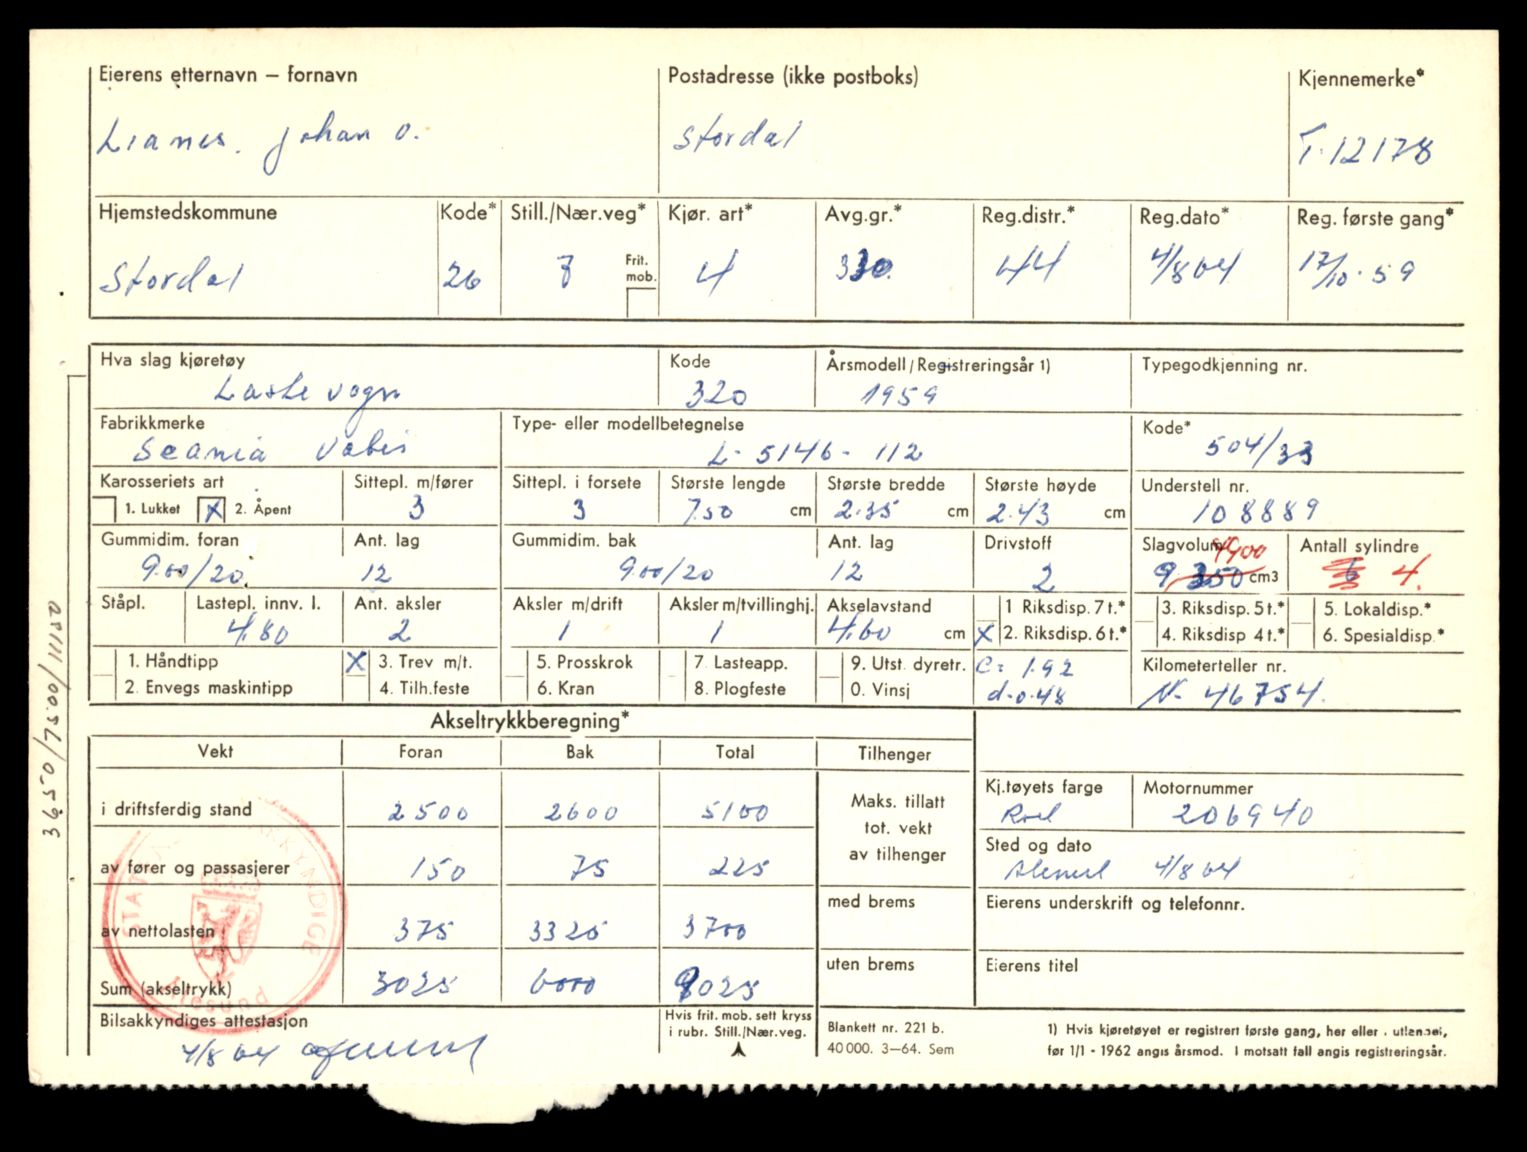 Eierens etternavn – fornavn Postadresse (ikke postboks) Kjennemerke*
Lianes, Johan O. Stordal T-12178
Hjemstedskommune Kode* Still./Nær.veg* Kjør. art* Avg.gr.* Reg.distr.* Reg.dato* Reg. første gang*
Frit. mob.
Stordal 26 7 4 330 44 4/8 64 17/10-59
Hva slag kjøretøy Kode Årsmodell/Registreringsår 1) Typegodkjenning nr.
Laste vogn 320 1959
Fabrikkmerke Type- eller modellbetegnelse Kode*
Scania Vabis L-5146-112 504/33
Karosseriets art Sittepl. m/fører Sittepl. i forsete Største lengde Største bredde Største høyde Understell nr.
1. Lukket X 2. Åpent 3 3 7.50 cm 2.35 cm 2.43 cm 108889
Gummidim. foran Ant. lag Gummidim. bak Ant. lag Drivstoff Slagvolum Antall sylindre
9.00/20 12 9.00/20 12 2 9350 cm3 6 4.
Ståpl. Lastepl. innv. l. Ant. aksler Aksler m/drift Aksler m/tvillinghj. Akselavstand 1 Riksdisp. 7 t.* 3. Riksdisp. 5 t.* 5. Lokaldisp.*
4.80 2 1 1 4.60 cm X 2. Riksdisp. 6 t.* 4. Riksdisp 4 t.* 6. Spesialdisp.*
1. Håndtipp X 3. Trev m/t. 5. Prosskrok 7. Lasteapp. 9. Utst. dyretr. C= 1.92 Kilometerteller nr.
2. Envegs maskintipp 4. Tilh.feste 6. Kran 8. Plogfeste 0. Vinsj d-0.48 N- 46754.
Akseltrykkberegning*
Vekt Foran Bak Total Tilhenger
i driftsferdig stand 2500 2600 5100
Maks. tillatt
tot. vekt
av tilhenger
Kj.tøyets farge Motornummer
Rød 206940
Sted og dato
4/8 64
av fører og passasjerer 150 75 225
av nettolasten 375 3325 3700 med brems Eierens underskrift og telefonnr.
Sum (akseltrykk) 3025 6000 9025 uten brems Eierens titel
Bilsakkyndiges attestasjon
4/8 64
Hvis frit. mob. sett kryss
i rubr. Still./Nær.veg.
Blankett nr. 221 b.
40 000. 3–64. Sem
1) Hvis kjøretøyet er registrert første gang, her eller i utlandet,
før 1/1 - 1962 angis årsmod. I motsatt fall angis registreringsår.